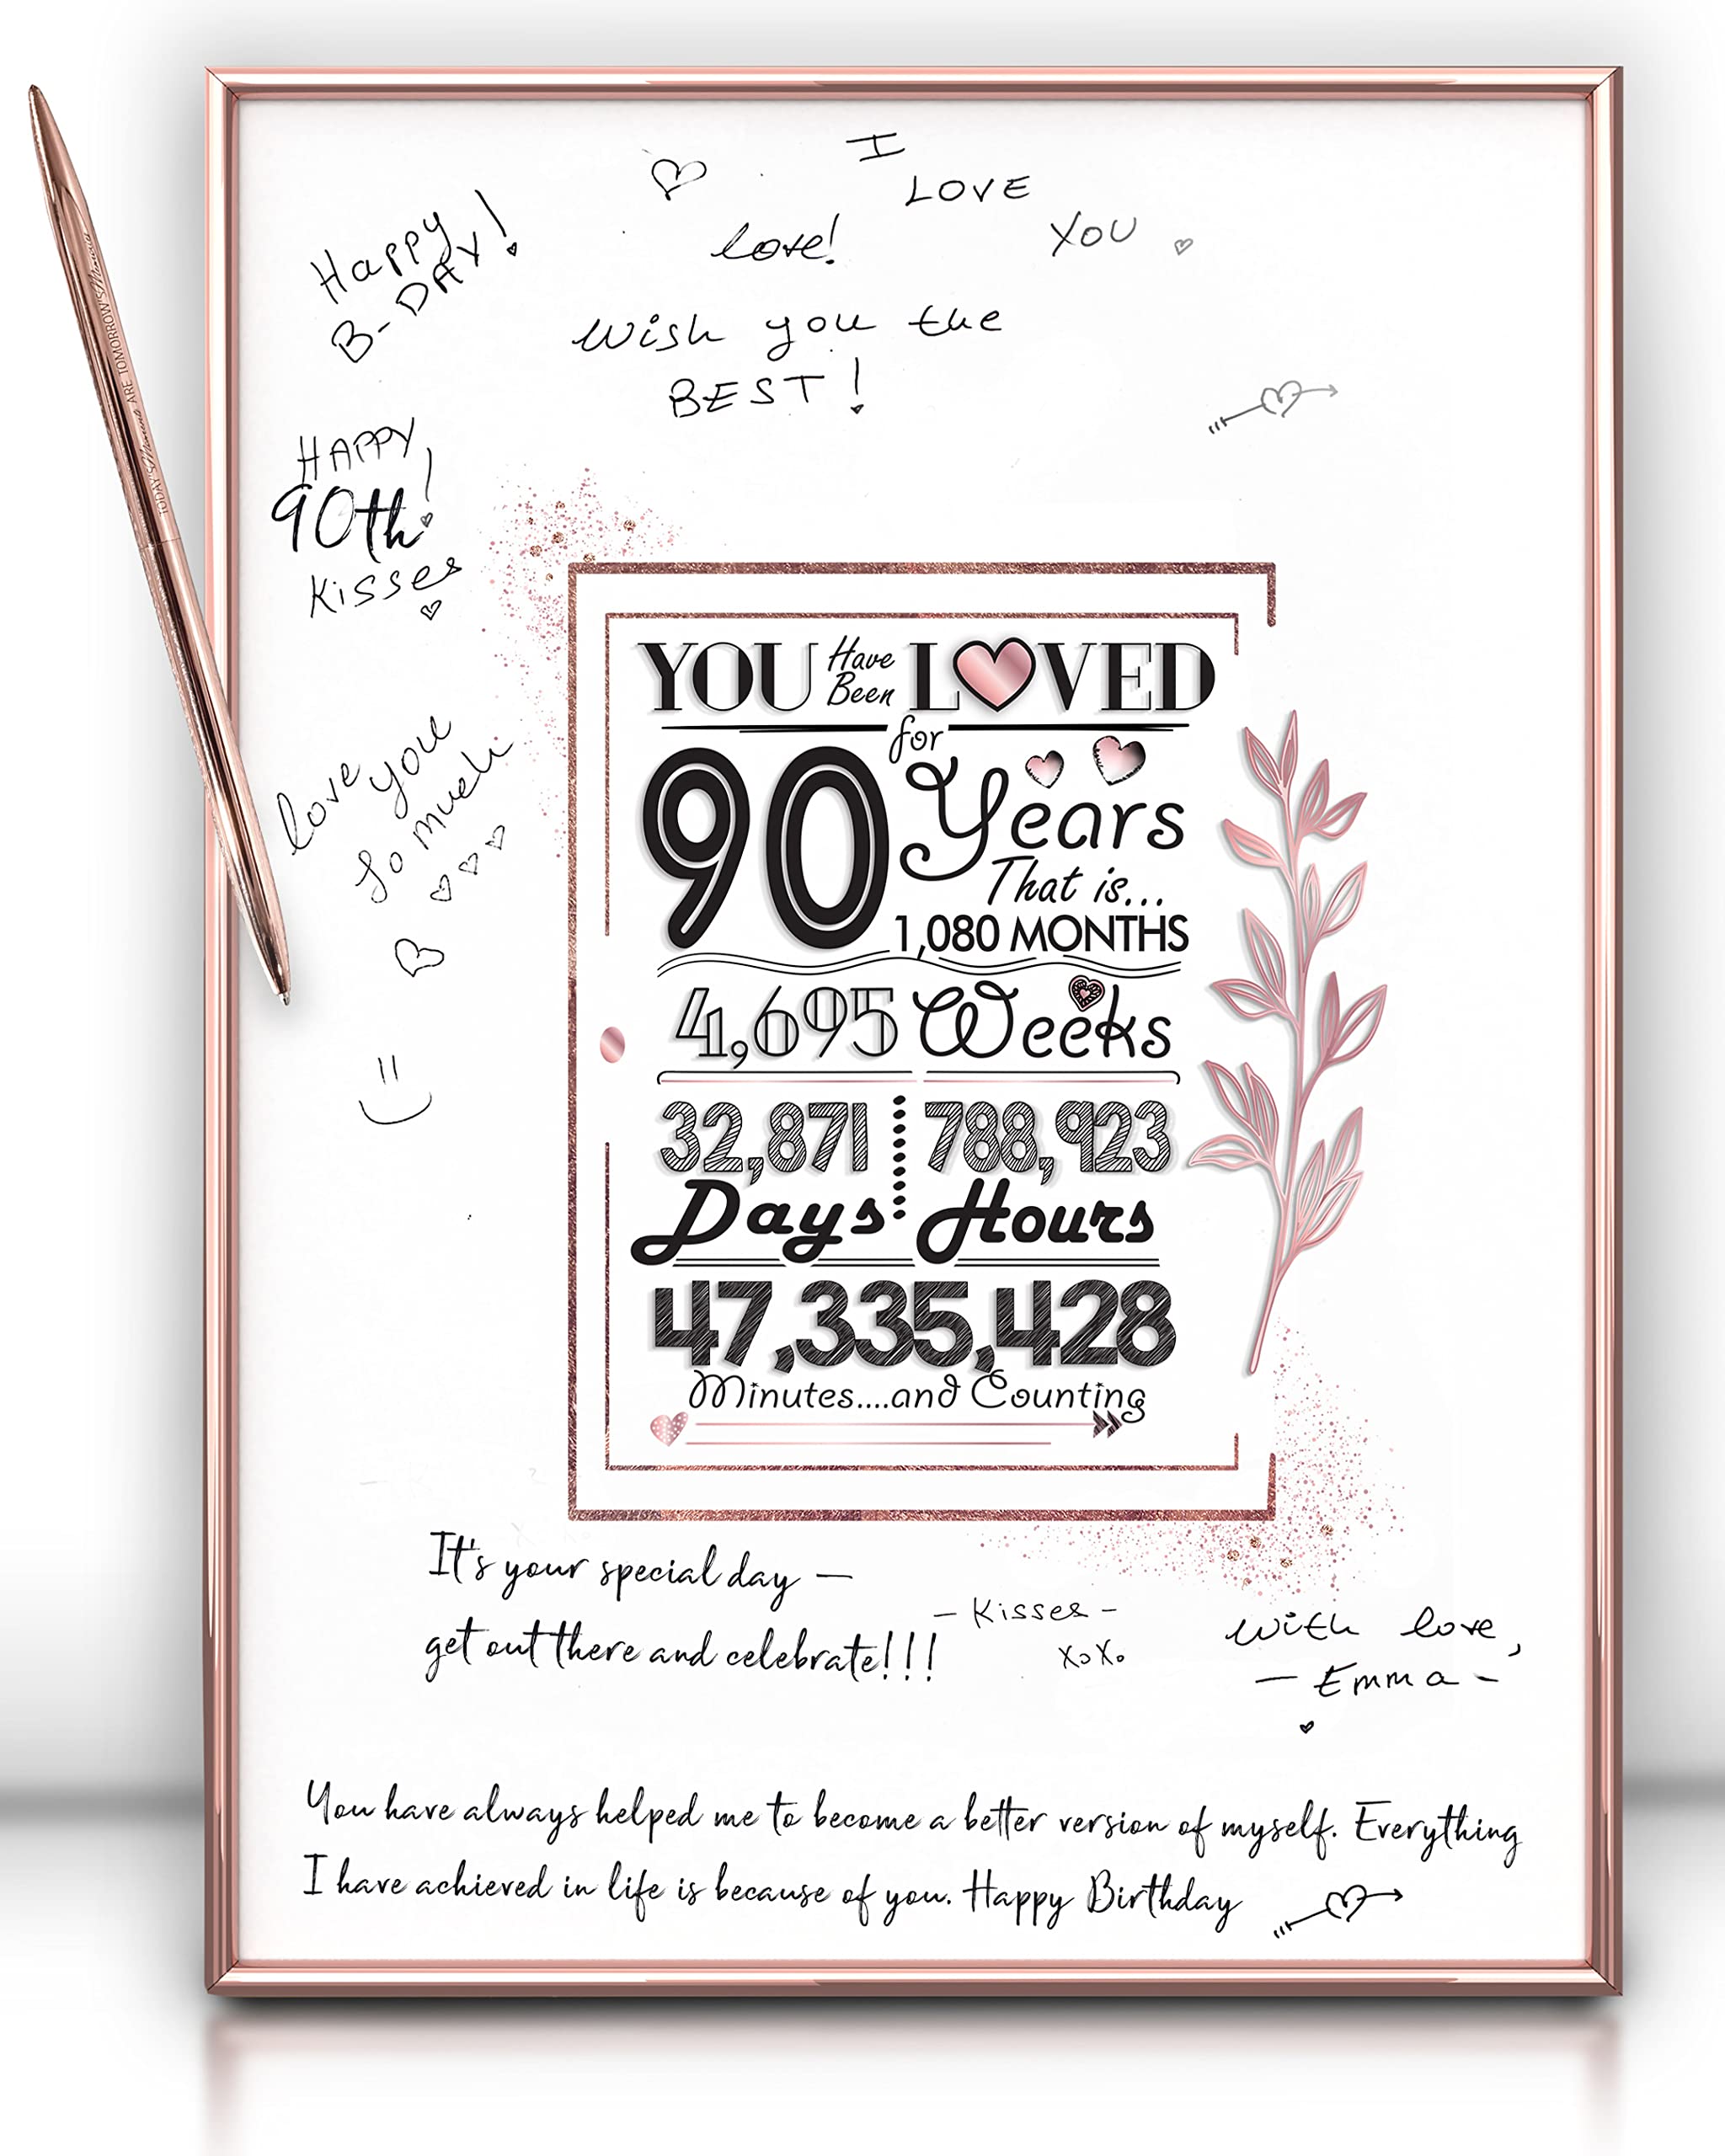 I
LOVE
YOU
Happy
B-DAY!
love!
Wish you the
BEST!
HAPPY
90th!
Kisses
love you
so much
YOU Have Been LOVED
for
90 Years
That is...
1,080 MONTHS
4,695 Weeks
32,871 Days
788,923 Hours
47,335,428
Minutes....and Counting
It's your special day —
get out there and celebrate!!!
- Kisses -
XoXo
with love,
- Emma -
You have always helped me to become a better version of myself. Everything
I have achieved in life is because of you. Happy Birthday
TODAY'S Moments ARE TOMORROW'S Memories